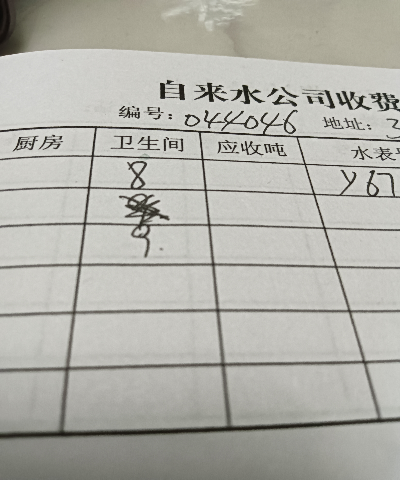 自来水公司收费
编号：044046 地址：
厨房 卫生间 应收吨 水表
8 y67
9